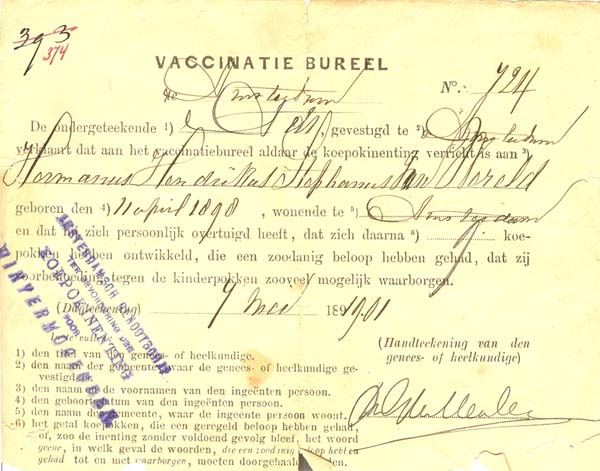 393
374
VACCINATIE BUREEL
te Amsterdam
No.: 724
De ondergeteekende 1) gevestigd te 2) Amsterdam
verklaart dat aan het vaccinatiebureel aldaar de koepokinenting verricht is aan 3)
Hermanus Hendrikus Stephanus van Woreld
geboren den 4) 11 april 1898, wonende te 5) Amsterdam
en dat hij zich persoonlijk overtuigd heeft, dat zich daarna 6) koe-
pokken hebben ontwikkeld, die een zoodanig beloop hebben gehad, dat zij
voorbehoeding tegen de kinderpokken zooveel mogelijk waarborgen.
(Dagteekening) 7 Mei 1901
In te vullen:
(Handteekening van den
genees- of heelkundige)
1) den titel van den genees- of heelkundige.
2) den naam der gemeente, waar de genees- of heelkundige ge-
vestigd is.
3) den naam en de voornamen van den ingeënten persoon.
4) den geboortedatum van den ingeënten persoon.
5) den naam der gemeente, waar de ingeënte persoon woont.
6) het getal koepokken, die een geregeld beloop hebben gehad,
of, zoo de inenting zonder voldoend gevolg bleef, het woord
geene, in welk geval de woorden, die een zoodanig beloop hebben
gehad tot en met waarborgen, moeten doorgehaald worden.
AMSTERDAMSCH GENOOTSCHAP
TER BEVORDERING DER
KOEPOKINENTING
VOOR
MINVERMOGENDEN